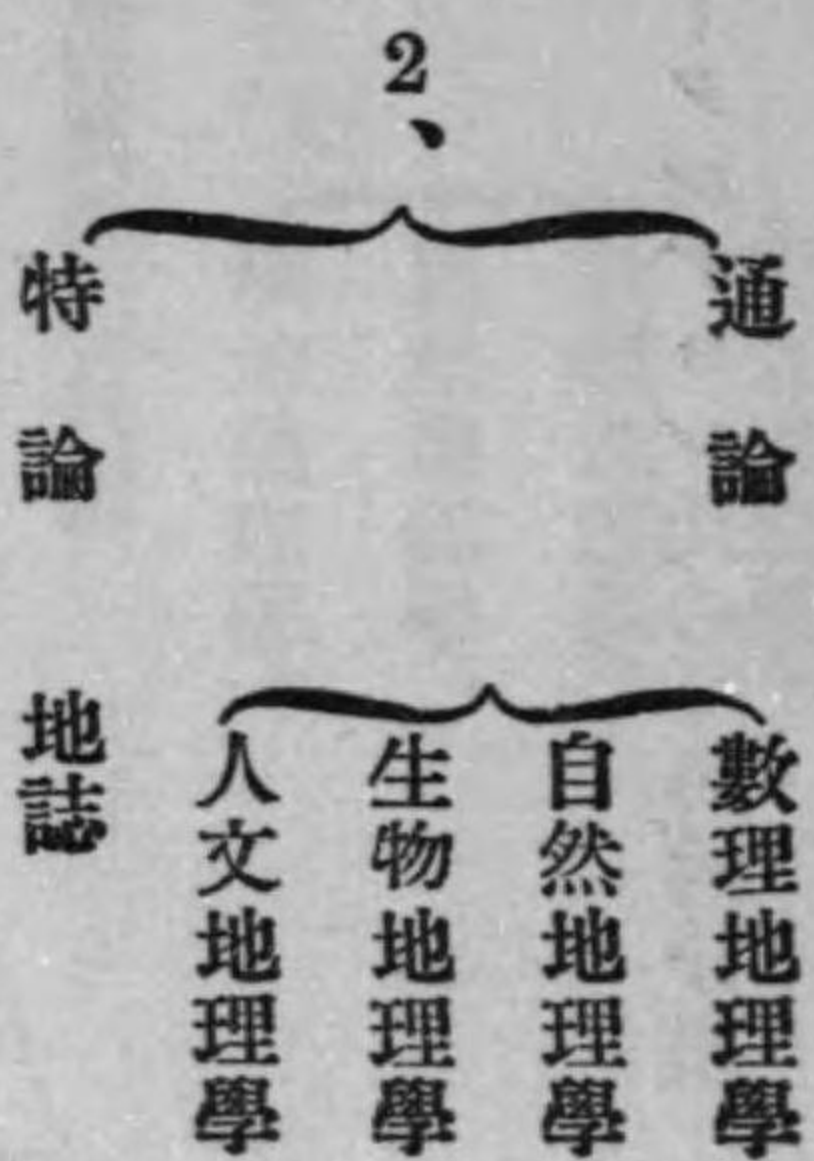 2、
通論
數理地理學
自然地理學
生物地理學
人文地理學
特論
地誌